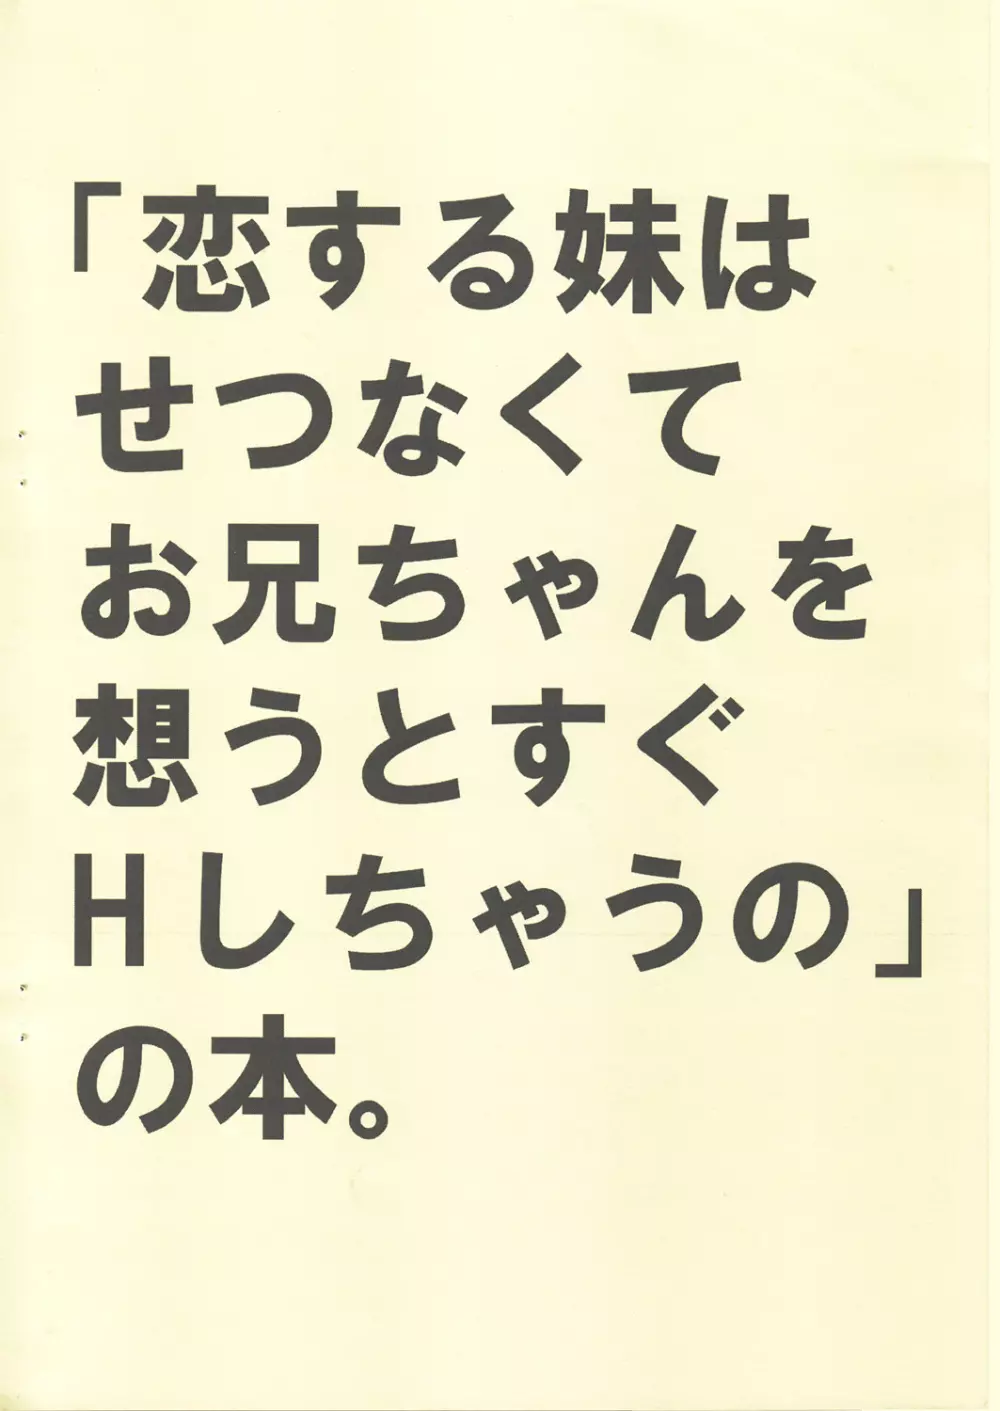 「恋する妹は
せつなくて
お兄ちゃんを
想うとすぐ
Hしちゃうの」
の本。